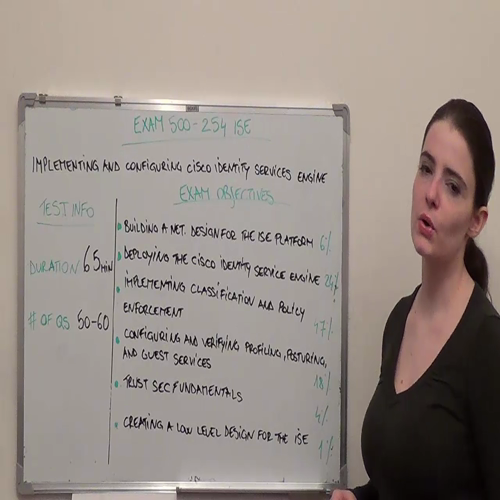 EXAM 500-254 ISE
IMPLEMENTING AND CONFIGURING CISCO IDENTITY SERVICES ENGINE
EXAM OBJECTIVES
TEST INFO
DURATION 65 MIN
# OF QS 50-60
BUILDING A NET. DESIGN FOR THE ISE PLATFORM 6%
DEPLOYING THE CISCO IDENTITY SERVICE ENGINE 24%
IMPLEMENTING CLASSIFICATION AND POLICY
ENFORCEMENT
47%
CONFIGURING AND VERIFYING PROFILING, POSTURING,
AND GUEST SERVICES
18%
TRUST SEC FUNDAMENTALS
4%
CREATING A LOW LEVEL DESIGN FOR THE ISE
1%